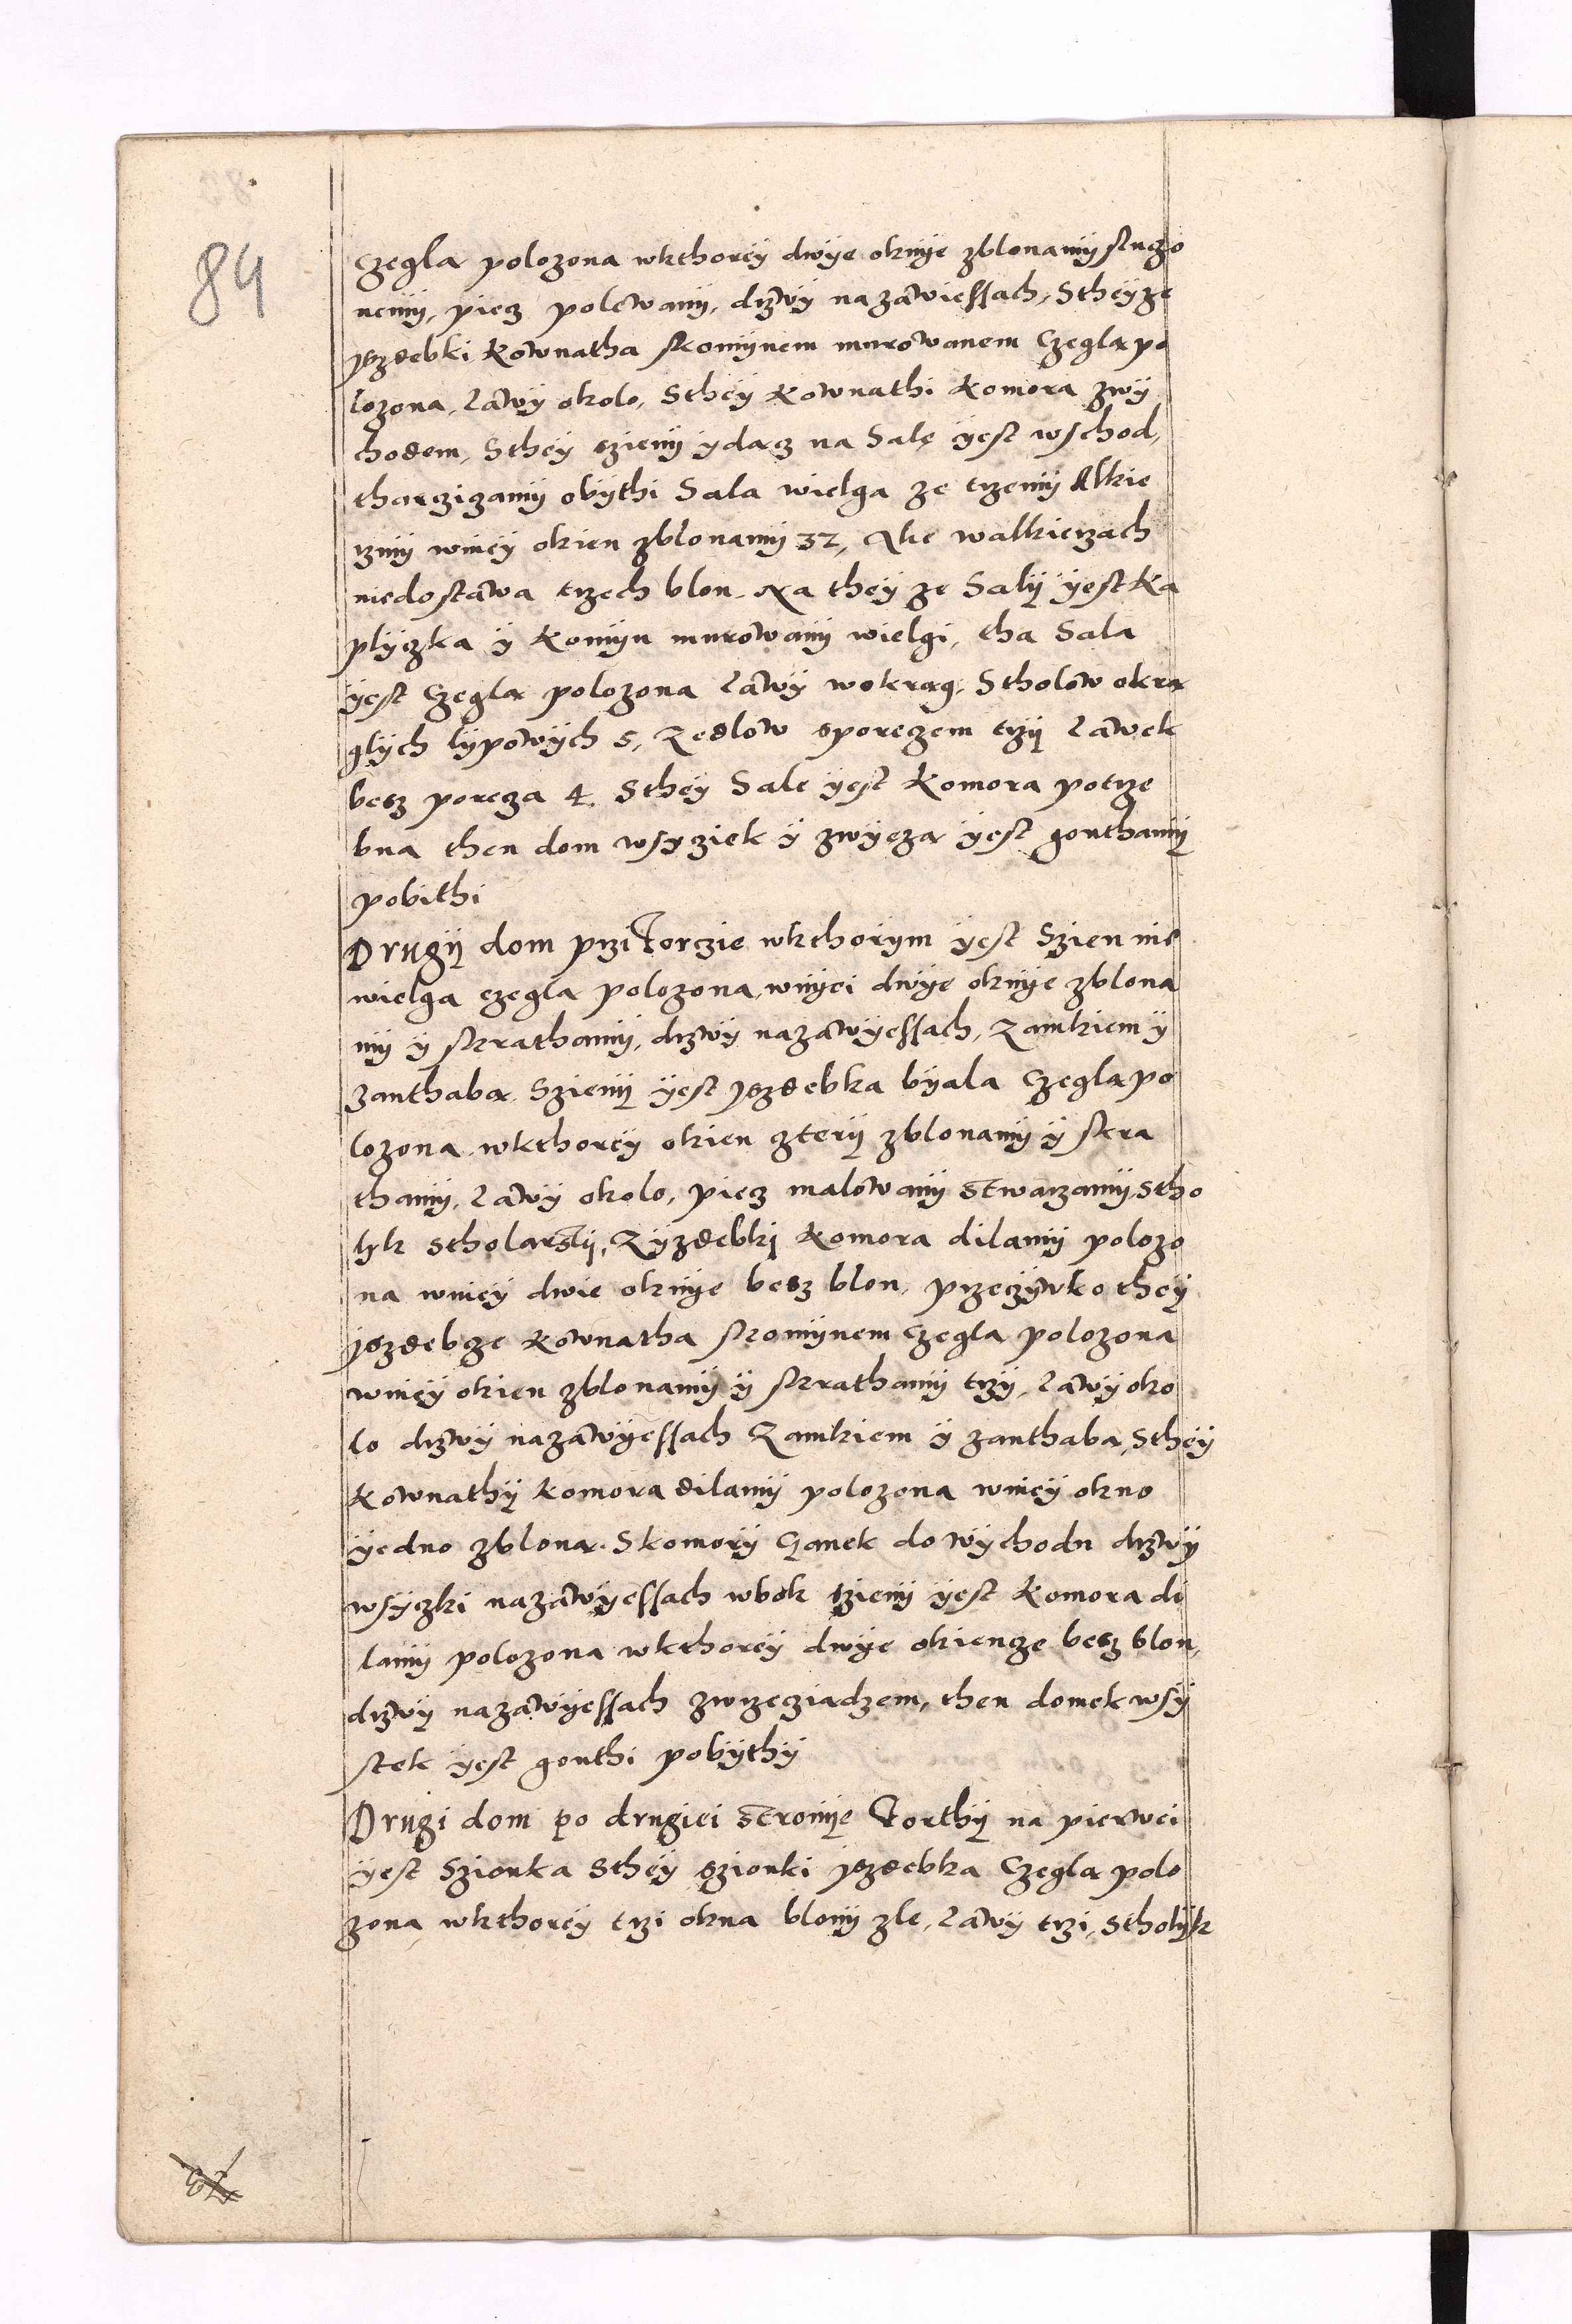 84
czegla polozona wkthoreÿ dwÿe oknÿe zblonamÿ stuczo
nemÿ, piecz polewanÿ, drzwÿ na zawiessach, Stheÿ ze
yszdebki kownatha skomÿnem murowanem Czegla po
lozona, lawÿ okolo, Stheÿ kownathi komora zwÿ
chodem, Stheÿ szienÿ ydacz na Salę ÿest wschod,
tharczizamÿ obÿthi Sala wielga ze trzemÿ Alkie
rzmÿ wnieÿ okien zblonamÿ 32, Ale walkierzach
niedostawa trzech blon. Na theÿ ze Salÿ ÿest ka
plÿczka ÿ komÿn murowanÿ wielgi, tha Sala
ÿest Czegla polozona lawÿ wokrag, Stholow okra
glÿch lÿpowÿch 5, Zedlow sporeczem trzÿ lawek
besz porecza 4. Stheÿ Sale ÿest komora potrze
bna then dom wsÿziek ÿ zwÿeza ÿest gonthamÿ
pobithi
Drugÿ dom przi Forczie wkthorÿm ÿest Szien nie
wielga czegla polozona, wnÿei dwÿe oknÿe zblona
mÿ ÿ skrathamÿ, drzwÿ nazawÿessach, Zamkiem ÿ
zanthaba Szienÿ ÿest yszdebka bÿala Czegla po
lozona wkthoreÿ okien czterÿ zblonamÿ ÿ skra
thamÿ, lawÿ okolo, piecz malowanÿ stwarzamÿ, Stho
lÿk stholarskÿ, Zÿzdebkÿ komora dilamÿ polozo
na wnieÿ dwie oknÿe besz blon, przeczÿwko theÿ
yszdebcze kownatha skomÿnem Czegla polozona
wnieÿ okien zblonamÿ ÿ skrathamÿ trzÿ, lawÿ oko
lo drzwÿ nazawÿessach Zamkiem ÿ zanthaba, Stheÿ
kownathÿ komora dilamÿ polozona wnieÿ okno
ÿedno zblona. Skomorÿ Ganek do wÿchodu drzwÿ
wsÿczki nazawÿessach wbok szienÿ ÿest komora di
lamÿ polozona wkthoreÿ dwÿe okiencze besz blon,
drzwÿ nazawÿessach zwrzecziadzem, then domek wsÿ
stek ÿest gonthi pobÿthÿ
Drugi dom po drugiei stronÿe Forthÿ na pierwei
ÿest Szionka Stheÿ szionki yszdebka Czegla polo
zona wkthoreÿ trzi okna blonÿ zle, lawÿ trzi, stholÿk